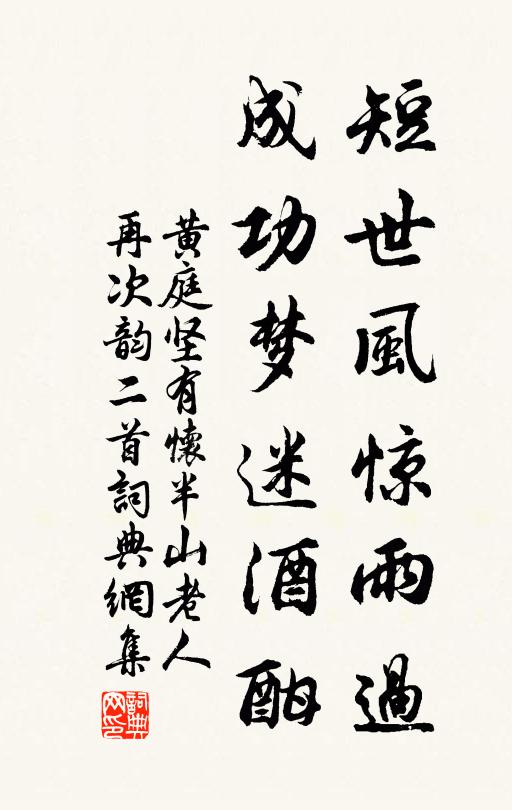 短世風惊雨過
成功梦迷酒酣
黄庭坚有懷半山老人
再次韵二首詞典網集
詞典
网印